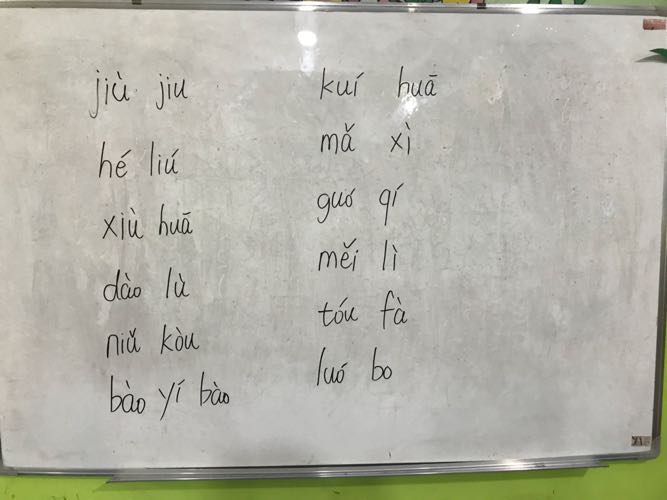 jiù jiu
hé liú
xiù huā
dào lù
niǔ kòu
bào yí bào
kuí huā
mǎ xì
guó qí
měi lì
tóu fà
luó bo